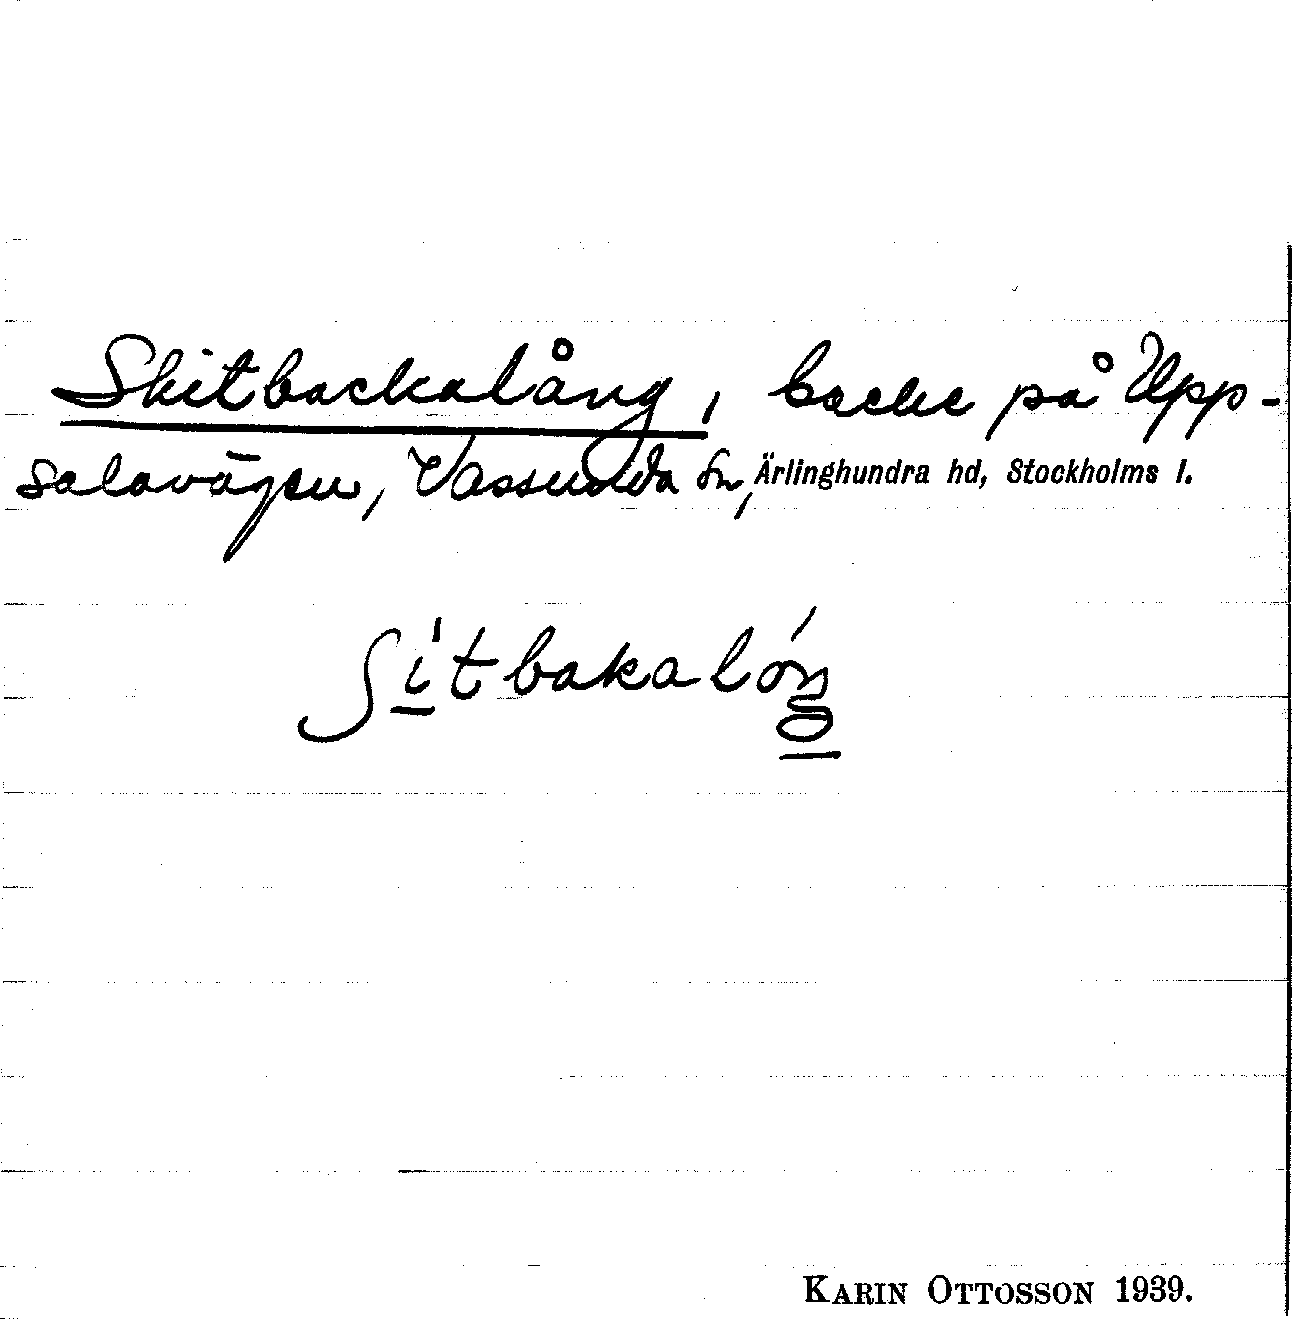 Skitbackalång, backe på Upp-
salavägen, Vassunda sn, Ärlinghundra hd, Stockholms l.
ʃi̲tbakalóŋ̲
KARIN OTTOSSON 1939.